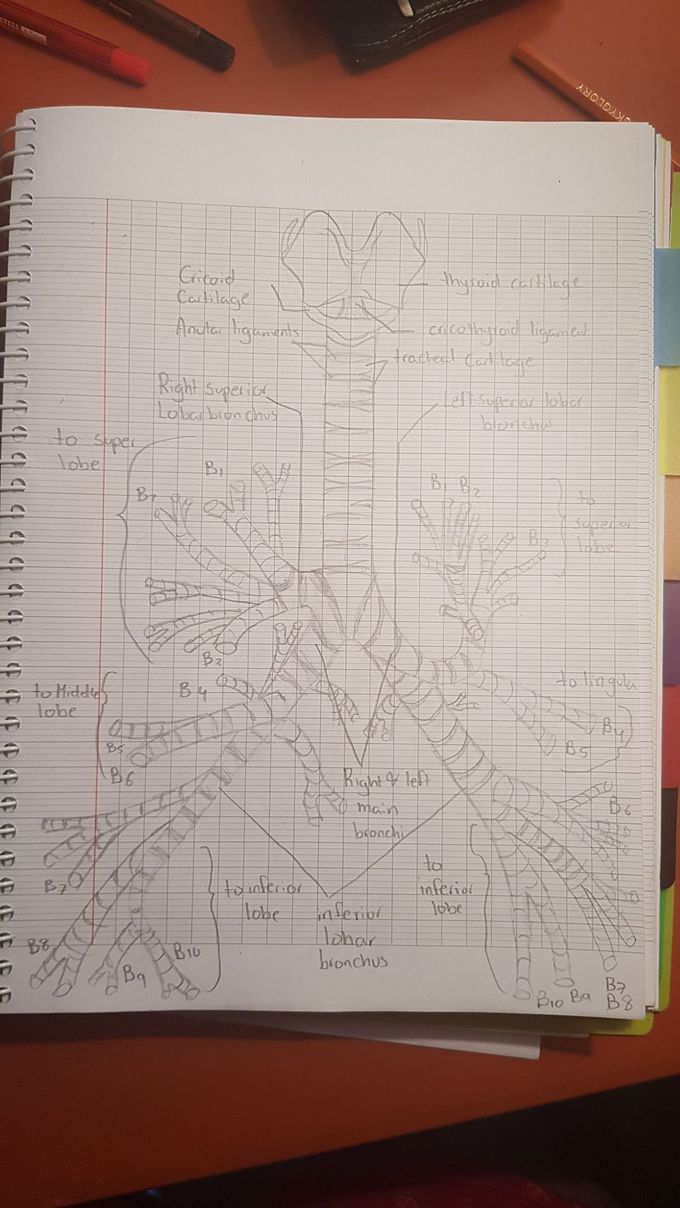 SKYGLORY
Cricoid
Cartilage
thyroid cartilage
Anular ligaments
cricothyroid ligament
tracheal Cartilage
Right superior
Lobar bronchus
Left superior lobar
bronchus
to super
lobe
B1
B1 B2
to
superior
lobe
B3
B2
to Middle
lobe
B4
B5
B6
to lingula
B4
B5
Right & left
main
bronchi
B6
B7
to inferior
lobe
inferior
lobar
bronchus
to
inferior
lobe
B8
B9
B10
B10 B9
B7
B8